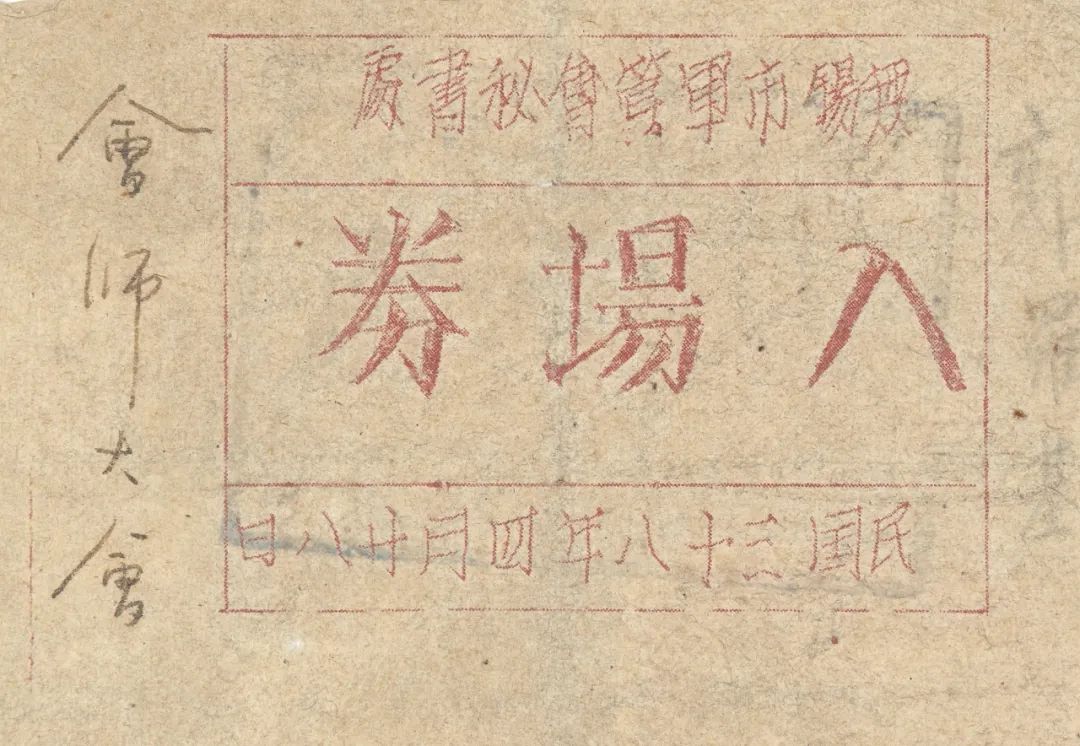 無錫市軍管會秘書處
入場券
民國三十八年四月廿八日
會師大會